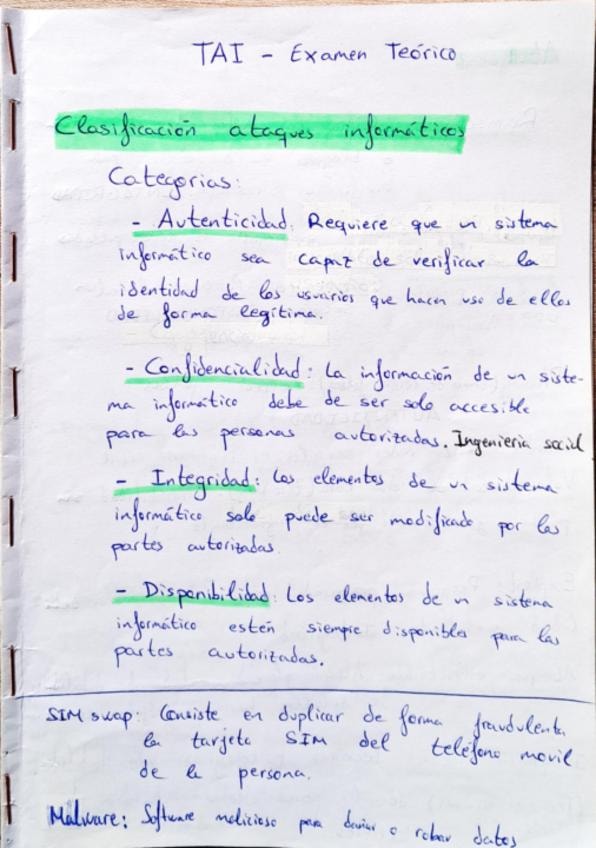 TAI - Examen Teórico
Clasificación ataques informáticos
Categorias:
- Autenticidad: Requiere que un sistema
informático sea capaz de verificar la
identidad de los usuarios que hacen uso de ellos
de forma legítima.
- Confidencialidad: La información de un siste-
ma informático debe de ser solo accesible
para las personas autorizadas. Ingenieria social
- Integridad: Los elementos de un sistema
informático solo puede ser modificado por las
partes autorizadas
- Disponibilidad: Los elementos de un sistema
informático estén siempre disponibles para las
partes autorizadas.
SIM swap: Consiste en duplicar de forma fraudulenta
la tarjeta SIM del teléfono movil
de la persona.
Malware: Software malicioso para dañar o robar datos